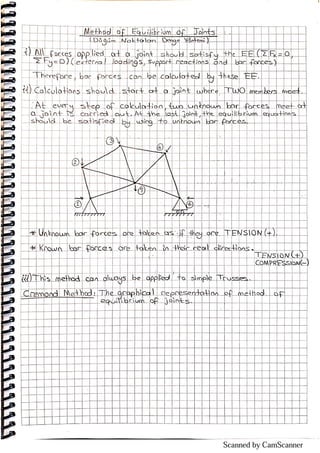 Method of Equilibrium of Joints
(Düğüm Noktaları Denge Yöntemi)
i) All forces applied at a joint should satisfy the EE (ΣFx=0,
ΣFy=0) (external loadings, support reactions and bar forces)
Therefore, bar forces can be calculated by these EE.
ii) Calculations should start at a joint where TWO members meet.
At every step of calculation, two unknown bar forces meet at
a joint is carried out. At the last joint, the equilibrium equations
should be satisfied by using to unknown bar forces.
3
4
2
5
1
6
* Unknown bar forces are taken as if they are TENSION (+).
* Known bar forces are taken in their real directions.
TENSION (+)
COMPRESSION (-)
iii) This method can always be applied to simple Trusses.
Cremona Method: The graphical representation of method of
equilibrium of joints.
Scanned by CamScanner